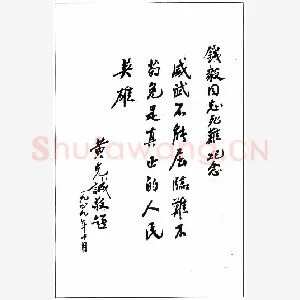 錢毅同志死難紀念
威武不能屈臨難不
苟免是真正的人民
英雄
黄克誠敬題
Shufawang.CN